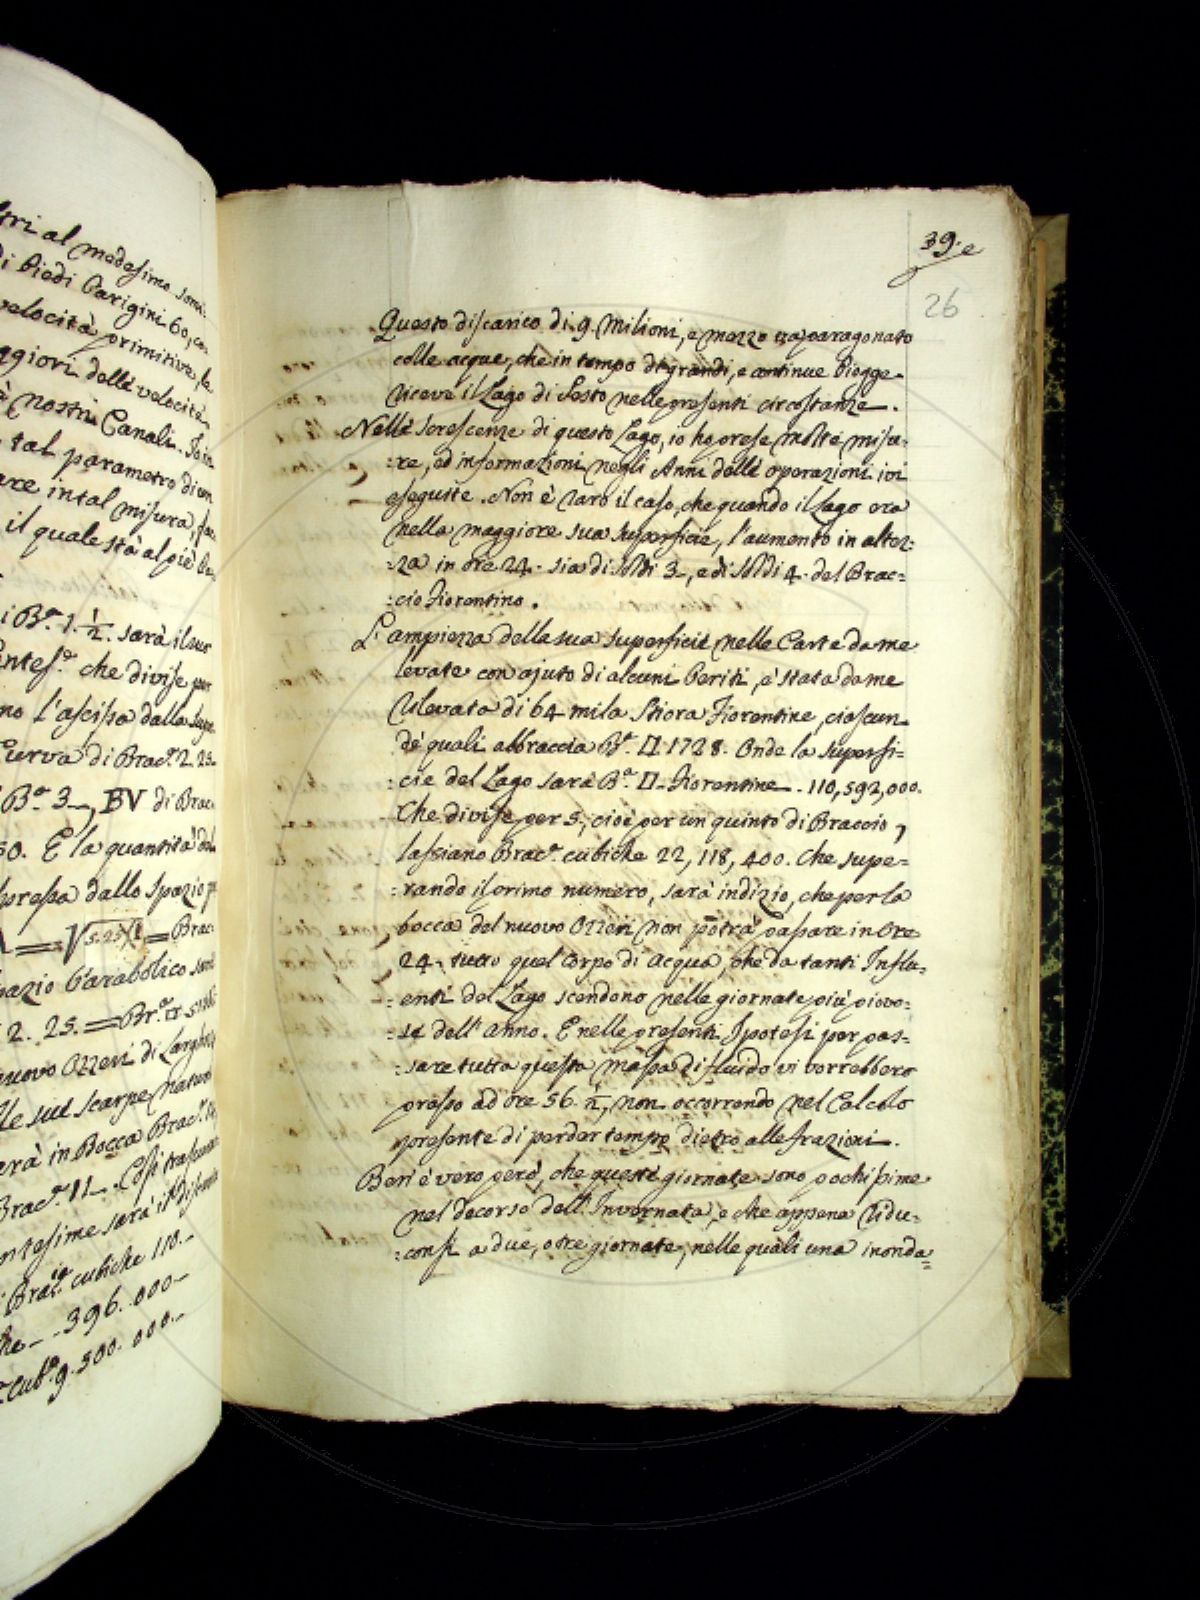 tri al medesimo somi-
di Piedi Parigini 60, co-
velocità primitiva, la
ggiori delle velocità
nostri Canali. Io in
tal parametro di un
are in tal misura, fac-
il quale stà al piè
i Bª. 1. 1/2. sarà il suo
Centesª. che divise per
no l'ascissa dalla
Curva di Bracª. 2. 25.
Bª. 3_, BV di Brac
50. E la quantità del
presa dallo spazio
= √5.25 = Brac
pazio Parabolico sarà
2. 25. = Brª.
nuovo Ozzeri di Largh
lle sue scarpe natur
erà in Bocca Bracª.
Bracª. 11_. Così trascur
ntesime sarà il Discarico
Bracª. cubiche 110._
he_ _396. 000_
Cubª. 9. 500. 000._
39. e
26
Questo discarico di 9. Milioni, e mezzo va paragonato
colle acque, che in tempo di grandi, e continue Piogge
riceve il Lago di Sesto nelle presenti circostanze.
Nelle screscenze di questo Lago, io ho prese molte misu-
:re, ed informazioni negli Anni delle operazioni ivi
eseguite. Non è raro il caso, che quando il Lago era
nella maggiore sua superficie, l'aumento in altez:
:za in ore 24. sia di soldi 3_, e di soldi 4. del Brac:
:cio Fiorentino.
L'ampiezza della sua superficie nelle Carte da me
levate con ajuto di alcuni Periti, è stata da me
rilevata di 64 mila Stiora Fiorentine, ciascun
de' quali abbraccia Bª. □ 1728. Onde la superfi-
:cie del Lago sarà Bª. □_ Fiorentine_. 110,592,000.
Che divise per 5., cioè per un quinto di Braccio,
lassiano Bracª. cubiche 22, 118, 400. Che supe-
:rando il primo numero, sarà indizio, che per la
bocca del nuovo Ozzeri non potrà passare in Ore
24. tutto quel Corpo di acqua, che da tanti Influ:
:enti del Lago scendono nelle giornate più piovo:
:se dell'anno. E nelle presenti Ipotesi per pas-
:sare tutta questa massa di fluido vi vorrebbero
presso ad ore 56. 1/2, non occorrendo nel Calcolo
presente di perder tempo dietro alle frazioni.
Ben è vero però, che queste giornate sono pochissime
nel decorso dell'Invernata, e che appena ridu:
:consi a due, o tre giornate, nelle quali una inonda=